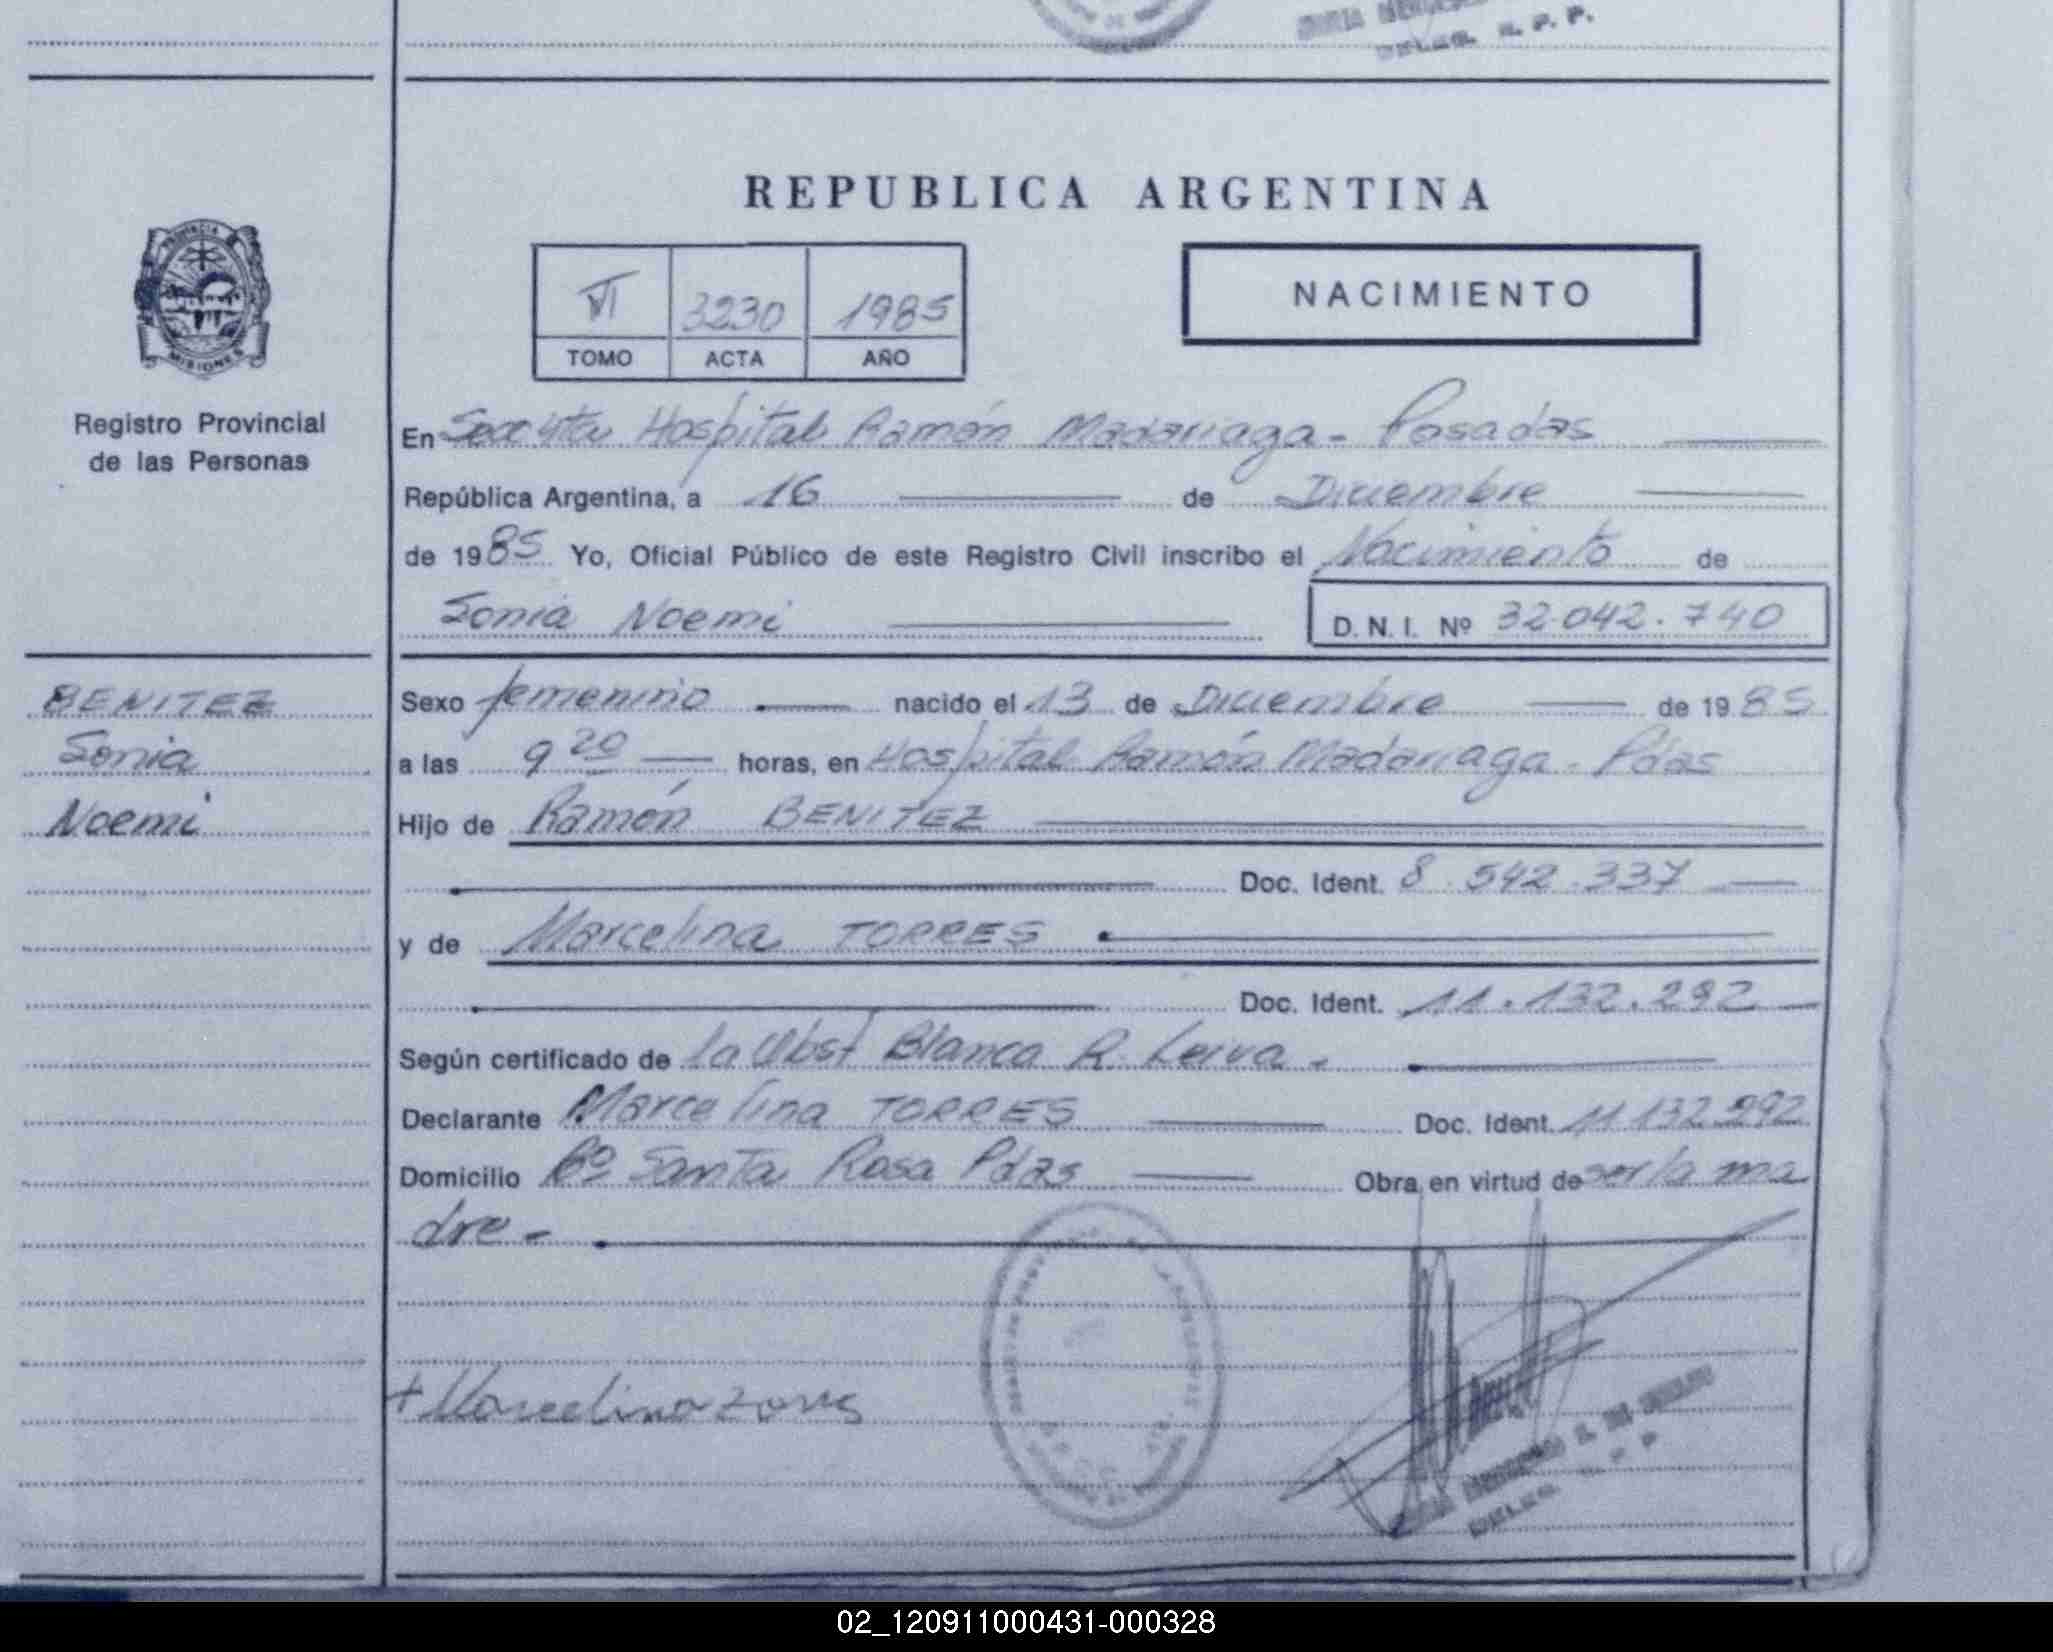 DELEG. R. P. P.
REPUBLICA ARGENTINA
PROVINCIA
MISIONES
VI 3230 1985
TOMO ACTA AÑO
NACIMIENTO
Registro Provincial
de las Personas
En Secc 4ta Hospital Ramón Madariaga - Posadas
República Argentina, a 16 de Diciembre
de 1985 Yo, Oficial Público de este Registro Civil inscribo el Nacimiento de
Sonia Noemi D. N. I. Nº 32.042.740
BENITEZ
Sonia
Noemi
Sexo femenino nacido el 13 de Diciembre de 1985
a las 9 20 horas, en Hospital Ramón Madariaga - Pdas
Hijo de Ramón BENITEZ
Doc. Ident. 8.542.337
y de Marcelina TORRES
Doc. Ident. 11.132.292
Según certificado de la Obst Blanca R. Leiva -
Declarante Marcelina TORRES Doc. Ident. 11 132 292
Domicilio Bº Santa Rosa Pdas Obra en virtud de ser la ma
dre -
+ Marcelina torres
DELEG.
02_120911000431-000328